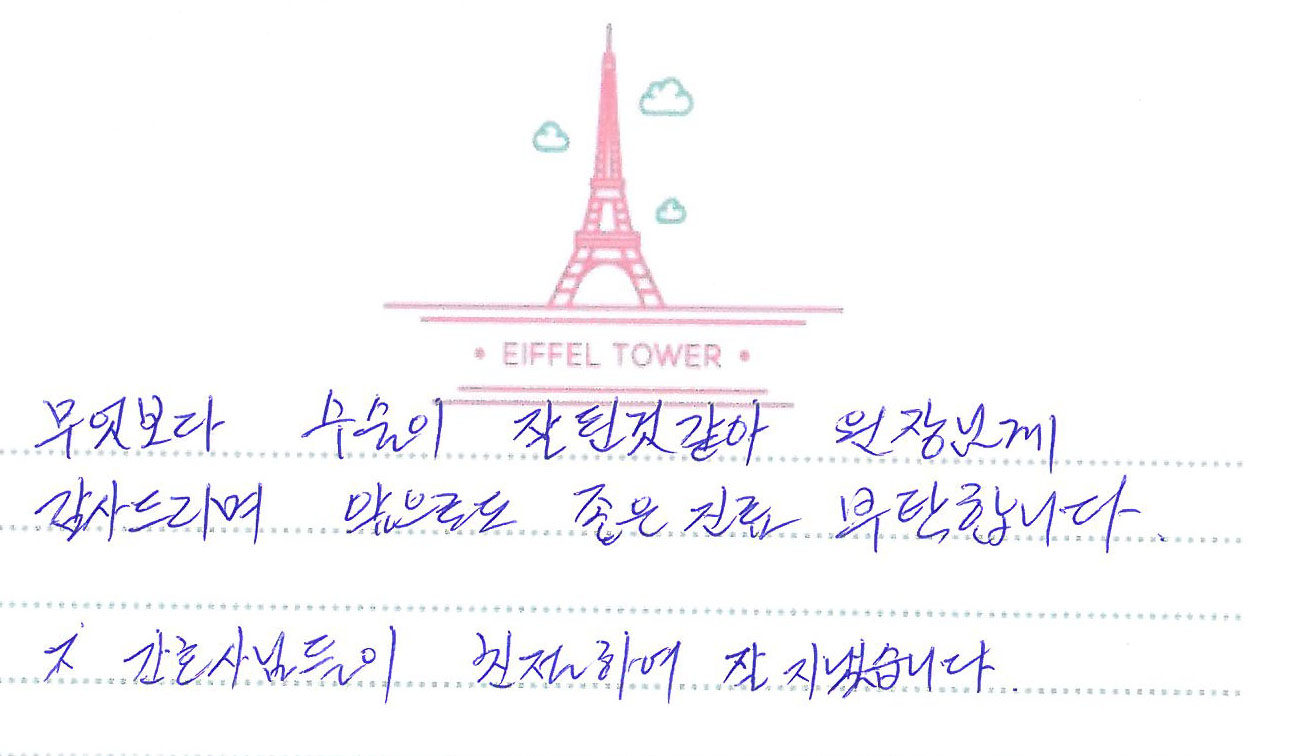 EIFFEL TOWER
무엇보다 수술이 잘된것같아 원장님께
감사드리며 앞으로도 좋은 진료 부탁합니다.
간호사님들이 친절하여 잘 지냈습니다.